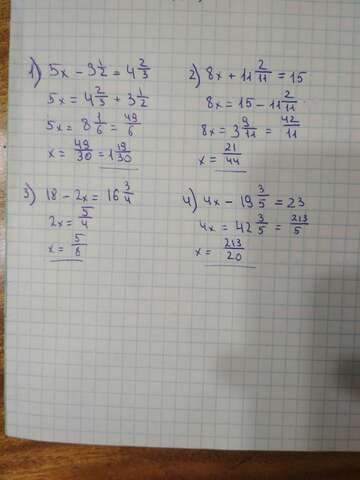 1) 5x - 3 1/2 = 4 2/3
5x = 4 2/3 + 3 1/2
5x = 8 1/6 = 49/6
x = 49/30 = 1 19/30
2) 8x + 11 2/11 = 15
8x = 15 - 11 2/11
8x = 3 9/11 = 42/11
x = 21/44
3) 18 - 2x = 16 3/4
2x = 5/4
x = 5/8
4) 4x - 19 3/5 = 23
4x = 42 3/5 = 213/5
x = 213/20